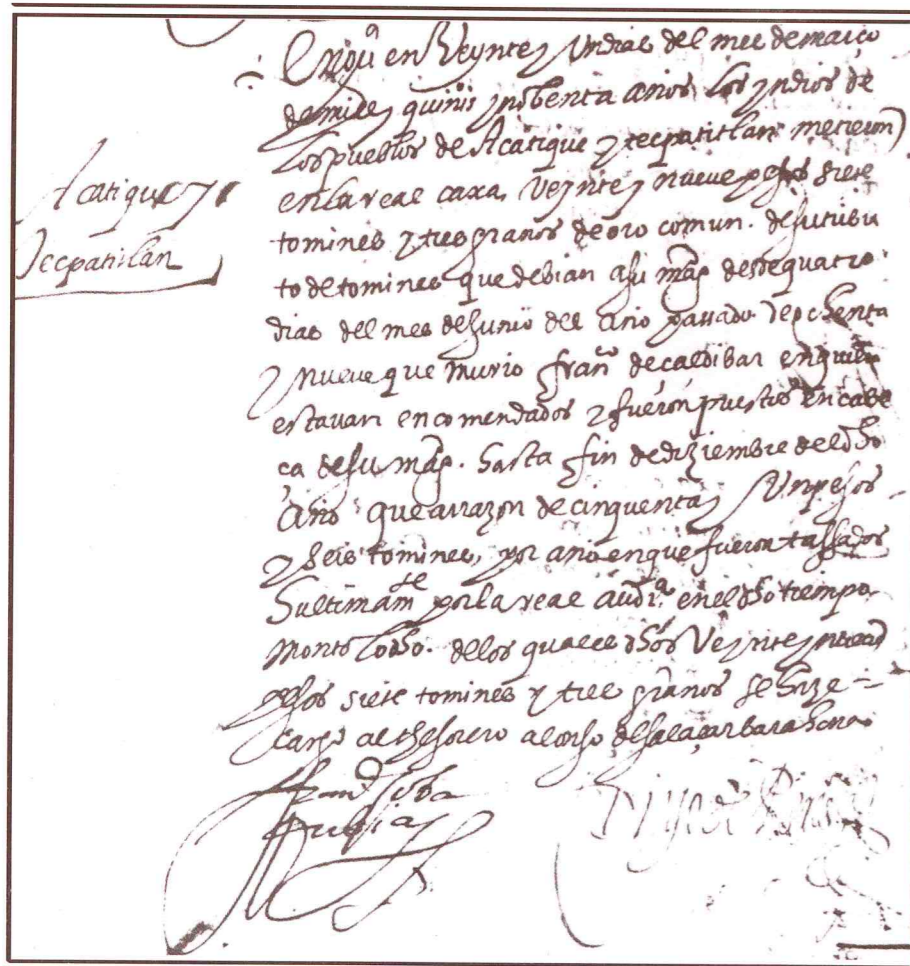 Acatique y
Tecpatitlan
en Veynte y Un dias del mes de março
de mill y quinios y nobenta años los yndios de
los pueblos de Acatique y tecpatitlan metieron
en la real caxa Veynte y nueve pesos siete
tomines y tres granos de oro comun. de su tribu
to de tomines que debian a su mag. desde quatro
dias del mes de Junio del año passado de ochenta
y nueve que murio franco de caldibar en quien
estavan encomendados y fueron puestos en cabe
ça de su mag. hasta fin de diziembre del dho
año que a razon de cinquenta y Un pesos
y seis tomines, por año en que fueron tassados
Vltimamte por la real audia en el dho tiempo
monto lo dho. de los quales dhos Veynte y nueve
pesos siete tomines y tres granos se hize
cargo al thesorero alonso de salaçar barahona